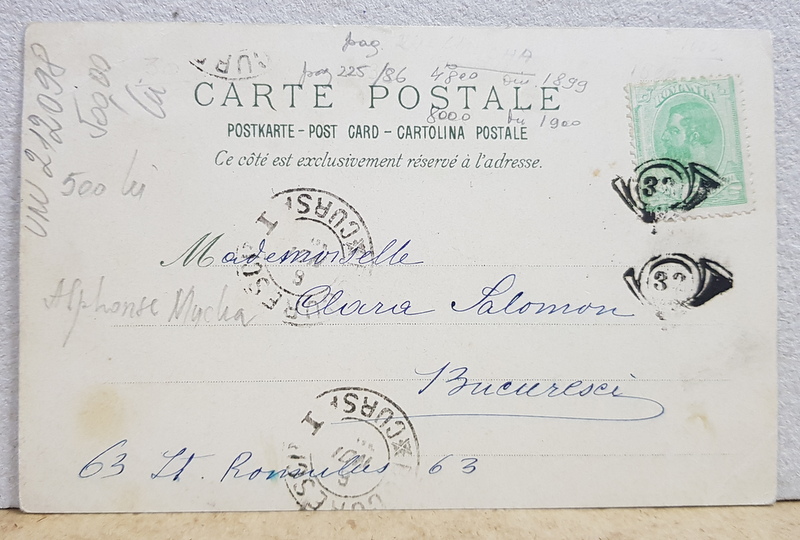 pag
pag 225/86 4800 din 1899
8000 din 1900
CARTE POSTALE
POSTKARTE - POST CARD - CARTOLINA POSTALE
Ce côté est exclusivement réservé à l'adresse.
212098
500 lei
Alphonse Mucha
ROMANIA
32
32
CURSA I
Mademoiselle
Clara Salomon
Bucuresci
CURSA I
63 St. Romulus 63